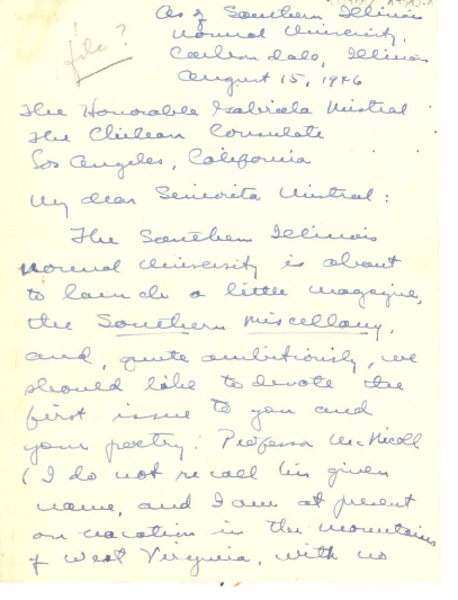 file?
As of Southern Illinois
Normal University,
Carbondale, Illinois
August 15, 1946
The Honorable Gabriela Mistral
The Chilean Consulate
Los Angeles, California
My dear Senorita Mistral:
The Southern Illinois
Normal University is about
to launch a little magazine,
the Southern Miscellany,
and, quite ambitiously, we
should like to devote the
first issue to you and
your poetry. Professor McNicoll
(I do not recall his given
name, and I am at present
on vacation in the mountains
of West Virginia, with no